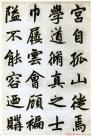 宮自孤山徙焉
學道循真之士
巾履雲會顧褊
隘不能容